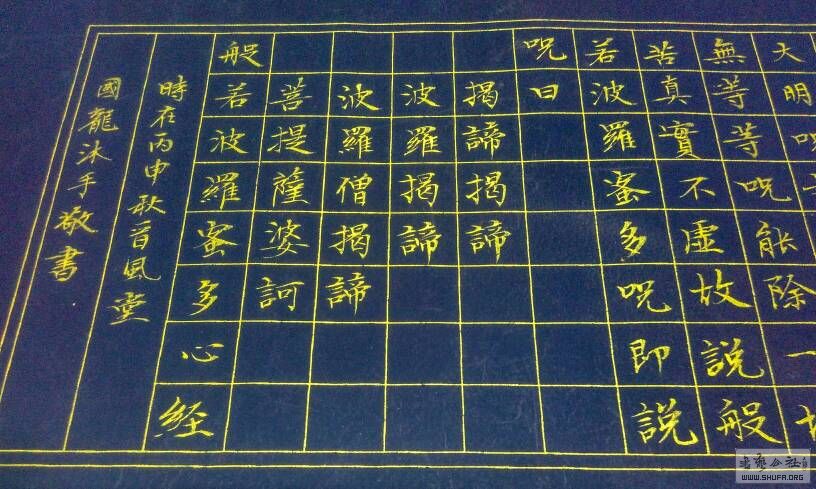 大明咒
無等等咒能除一切
苦真實不虛故說般
若波羅蜜多咒即說
咒曰
揭諦揭諦
波羅揭諦
波羅僧揭諦
菩提薩婆訶
般若波羅蜜多心経
時在丙申秋首風堂
國龍沐手敬書
WWW.SHUFA.ORG